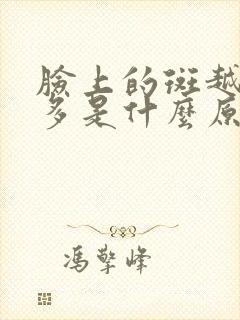 臉上的斑越
多是什麼原
馮擎峰